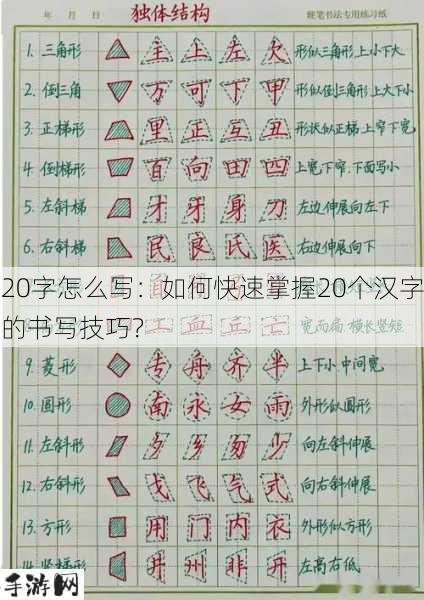 年 月 日 独体结构 硬笔书法专用练习纸
1. 三角形 主 上 左 欠 形似三角形 上小下大
2. 倒三角 万 可 下 甲 形似倒三角形 上大下小
3. 正梯形 里 正 互 丑 形状似正梯 上窄下宽
4. 倒梯形 百 向 田 四 上宽下窄、下面写小
5. 左斜梯 才 牙 身 刀 右边伸展向左下
6. 右斜梯 民 良 氏 医 右边伸展向下
20字怎么写：如何快速掌握20个汉字
的书写技巧？
工 血 丘 亡 宽而扁 横长竖短
9. 菱形 专 舟 齐 半 上下小中间宽
10. 圆形 南 永 女 雨 外形似圆形
11. 左斜形 乡 勿 少 向左斜伸展
12. 右斜形 戈 飞 气 式 向右斜伸展
13. 方形 用 门 内 衣 外形似方形
14. 竖梯形 井 州 非 开 左高右低
手游网